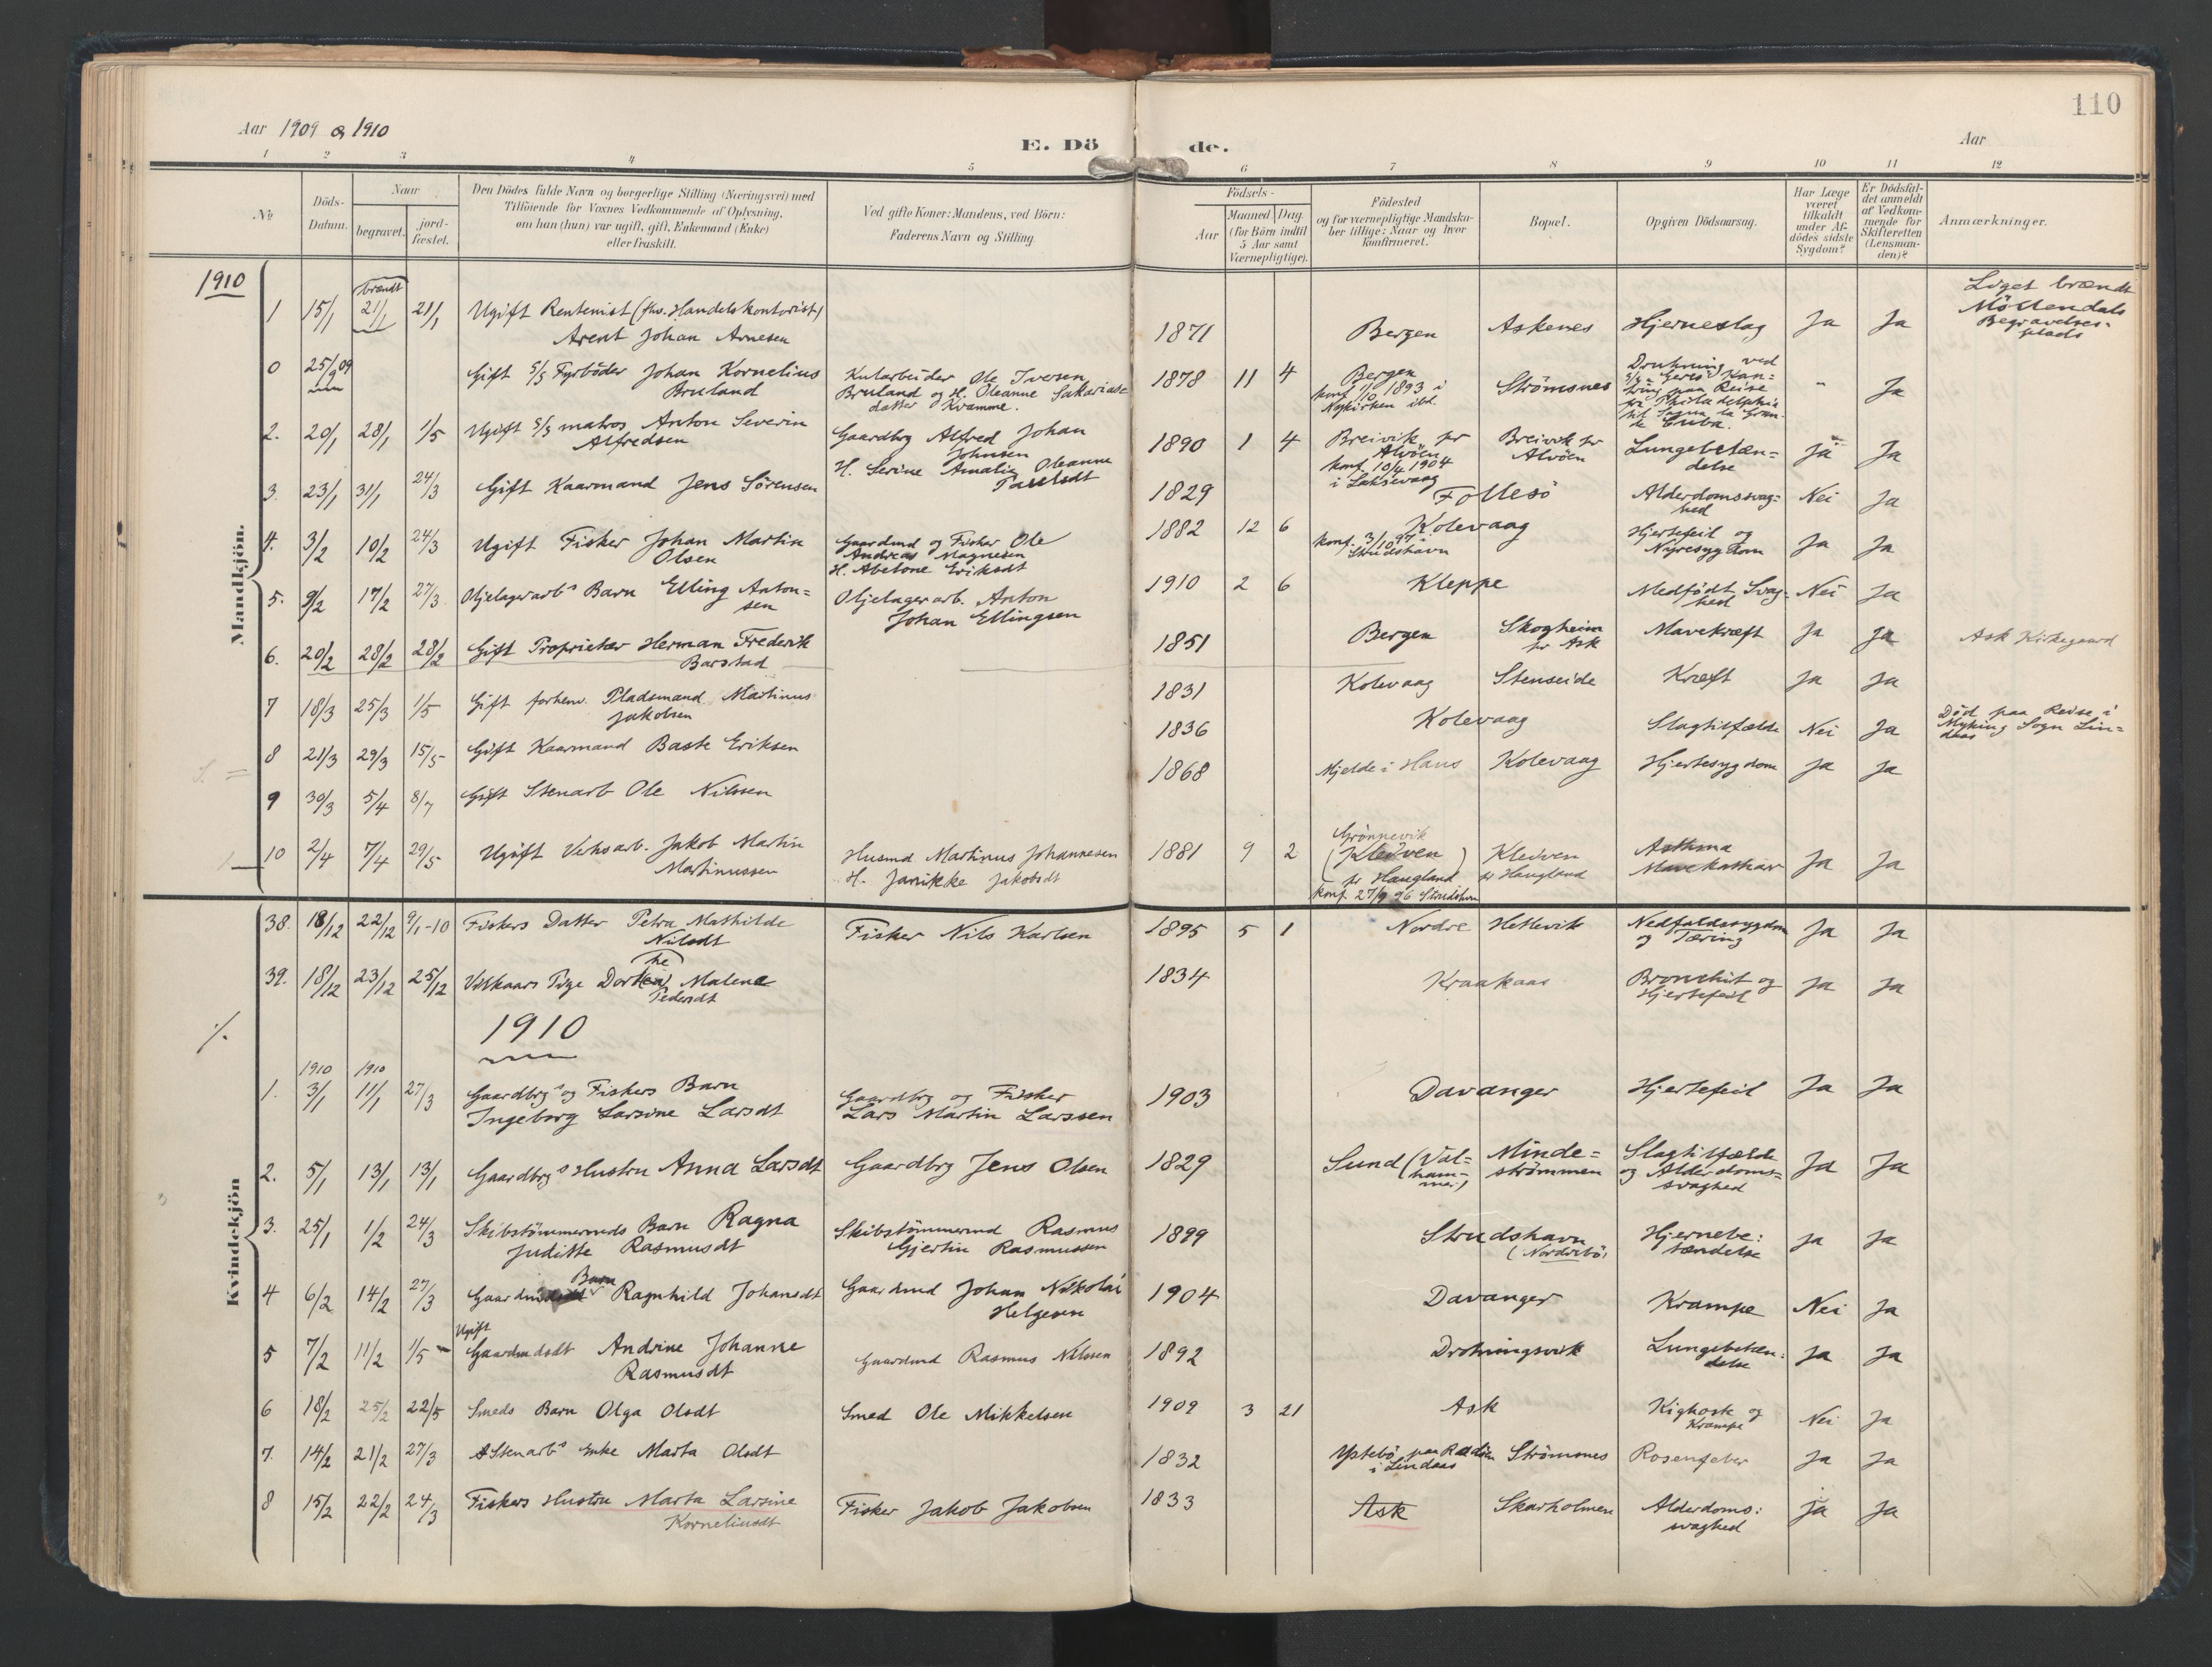 110
Aar 1909 & 1910
E. Dö de.
Aar
1 2 3 4 5 6 7 8 9 10 11 12
No
Döds-
Datum.
Naar
begravet.
jord-
fæstet.
Den Dödes fulde Navn og borgerlige Stilling (Næringsvei) med
Tilföiende for Voxnes Vedkommende af Oplysning,
om han (hun) var ugift, gift, Enkemand (Enke)
eller fraskilt.
Ved gifte Koner: Mandens, ved Börn:
Faderens Navn og Stilling.
Födsels-
Aar
Maaned
Dag.
(for Börn indtil
5 Aar samt
Værnepligtige).
Födested
og for værnepligtige Mandska-
ber tillige: Naar og hvor
konfirmeret.
Bopæl.
Opgiven Dödsaarsag.
Har Læge
været
tilkaldt
under Af-
dödes sidste
Sygdom?
Er Dödsfal-
det anmeldt
af Vedkom-
mende for
Skifteretten
(Lensman-
den)?
Anmærkninger.
Mandkjön.
1910
1 15/1 brændt 21/1 21/1 Ugift Rentenist (fhv. Handelskontorist)
Arent Johan Arnesen
1871 Bergen Askenes Hjerneslag Ja Ja
Liget brændt
Möllendals
Begravelses-
plads
0 25/9 09 Gift S/S Fyrböder Johan Kornelius
Bruland
Kularbeider Ole Iversen
Bruland og H. Oleanne Sakarias-
datter Kvamme.
1878 11 4 Bergen
konf 1/10 1893 i
Nykirken ibd.
Strömsnes
Drukning ved
paa Reise
Philadelphia
Cuba.
" Ja
2. 20/1 28/1 1/5 Ugift S/S matros Anton Severin
Alfredsen
Gaardbrg Alfred Johan
Johnsen
H. Serine Amalie Oleanne
1890 1 4 Breivik pr
Alvöen
konf. 10/4 1904
i Laksevaag
Breivik pr
Alvöen
Lungebetæn=
delse
Ja Ja
3. 23/1 31/1 24/3 Gift Kaarmand Jens Sörensen
1829 Follesö Alderdomssvag=
hed
Nei Ja
4. 3/2 10/2 24/3 Ugift Fisker Johan Martin
Olsen
Gaardmd og Fisker Ole
Andreas Magnesen
H. Abelone Eriksdt
1882 12 6 Kolevaag
konf. 3/10 97 i
Strudshavn
Hjertefeil og
Nyresygdom
Ja Ja
5. 9/2 17/2 27/3 Oljelagerarbs Barn Elling Anton=
sen
Oljelagerarb. Anton
Johan Ellingsen
1910 2 6 Kleppe Medfödt Svag-
hed
Nei Ja
6. 20/2 28/2 28/2 Gift Proprietær Herman Frederik
Barstad
1851 Bergen Skogheim
pr Ask
Mavekræft Ja Ja Ask Kirkegaard
7 18/3 25/3 1/5 Gift forhenv. Pladsmand Martinus
Jakobsen
1831 Kolevaag Stenseide Kræft Ja Ja
8 21/3 29/3 15/5 Gift Kaarmand Baste Eriksen
1836 Kolevaag Slagtilfælde Nei Ja
Död paa Reise i
Myking Sogn Lin=
daas
9 30/3 5/4 8/7 Gift Stenarb Ole Nilssen
1868 Mjelde i Haus Kolevaag Hjertesygdom Ja Ja
10 2/4 7/4 29/5 Ugift Verksarb. Jakob Martin
Martinussen
Husmd Martinus Johannesen
H. Janikke Jakobsdt
1881 9 2 Grönnevik
(Kleiven)
pr Haugland
konf. 27/9 96 Strudshvn
Kleiven
pr Haugland
Asthma
Mavekathar
Ja Ja
Kvindekjön
38. 18/12 22/12 9/1-10 Fiskers Datter Petra Mathilde
Nilsdt
Fisker Nils Karlsen
1895 5 1 Nordre Hetlevik Nedfaldssygdom
og Tæring
Ja Ja
39. 18/12 23/12 25/12 Vilkaars Pige Dorthea Malene
Pedersdt
he
1834 Kraakaas Bronchit og
Hjertefeil
Ja Ja
1910
1910 1910
1. 3/1 11/1 27/3 Gaardbrgs og Fiskers Barn
Ingeborg Larsine Larsdt
Gaardbrg og Fisker
Lars Martin Larssen
1903 Davanger Hjertefeil Ja Ja
2. 5/1 13/1 13/1 Gaardbrgs Hustru Anna Larsdt
Gaardbrg Jens Olsen
1829 Sund (Val=
ham=
mer)
Minde=
strömmen
Slagtilfælde
og Alderdoms=
svaghed
Ja Ja
3. 25/1 1/2 24/3 Skibstömmermds Barn Ragna
Juditte Rasmusdt
Skibstömmermd Rasmus
Gjertin Rasmussen
1899 Strudshavn
(Nordrebö)
Hjernebe:
tændelse
Ja Ja
4 6/2 14/2 27/3 Gaardmds Barn Ragnhild Johansdt
Gaardmd Johan Nikolai
Helgesen
1904 Davanger Krampe Nei Ja
5 7/2 11/2 1/5 Ugift
Gaardmdsdt Andrine Johanne
Rasmusdt
Gaardmd Rasmus Nilssen
1892 Drotningsvik Lungebetæn:
delse
Ja Ja
6 18/2 25/2 22/5 Smeds Barn Olga Olsdt
Smed Ole Mikkelsen
1909 3 21 Ask Kighoste og
Krampe
Nei Ja
7. 14/2 21/2 27/3 Stenarbs Enke Marta Olsdt
1832 Ystebö paa Radöen
i Lindaas
Strömsnes Rosenfeber Ja Ja
8 15/2 22/2 24/3 Fiskers Hustru Marta Larsine
Korneliusdt
Fisker Jakob Jakobsen
1833 Ask Skarholmen Alderdoms:
svaghed
Ja Ja